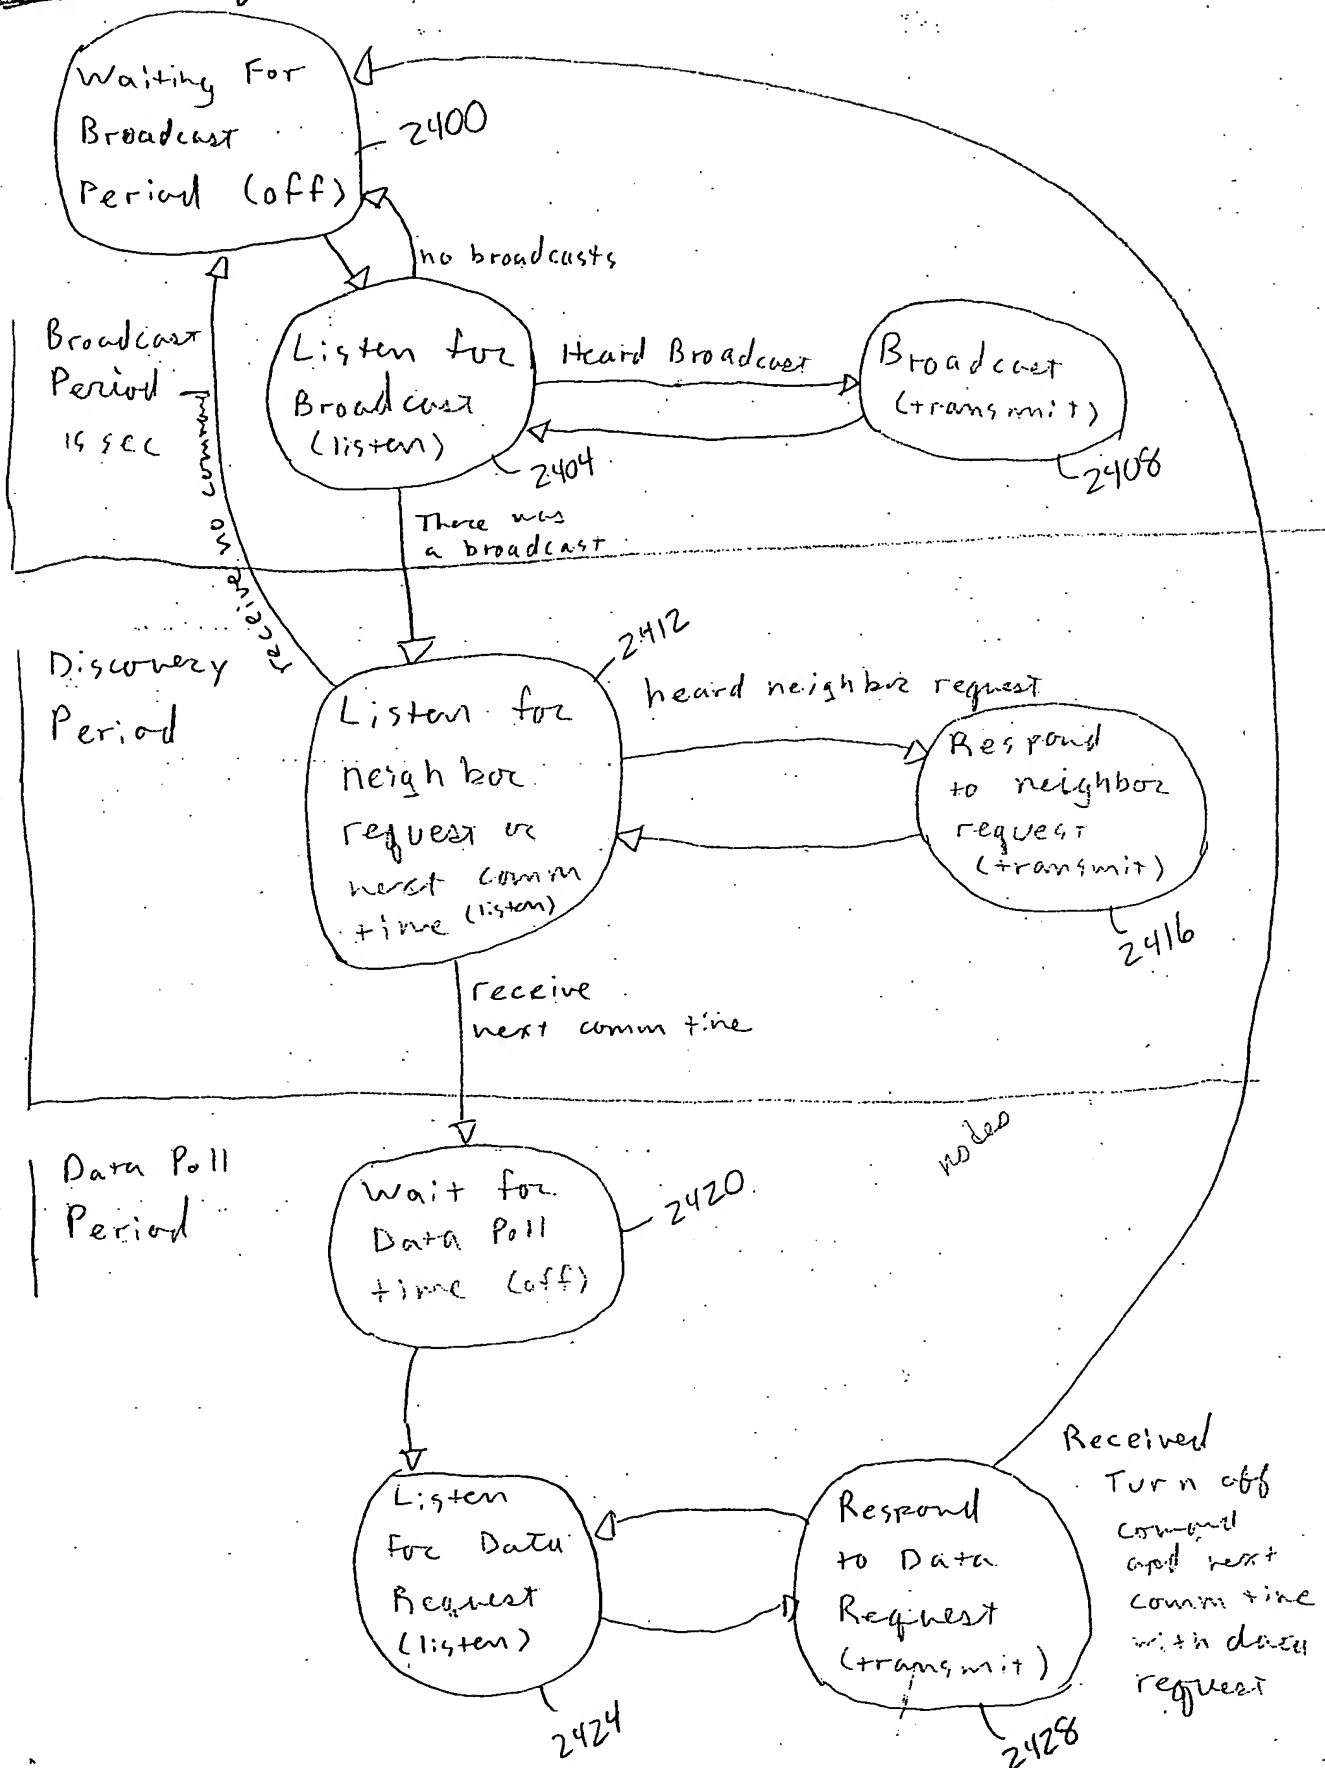 Waiting For
Broadcast
Period (off)
2400
no broadcasts
Broadcast
Period
15 sec
Listen for
Broadcast
(listen)
2404
Heard Broadcast
Broadcast
(transmit)
2408
There was
a broadcast
receive no command
Discovery
Period
2412
Listen for
neighbor
request or
next comm
time (listen)
heard neighbor request
Respond
to neighbor
request
(transmit)
2416
receive
next comm time
nodes
Data Poll
Period
Wait for
Data Poll
time (off)
2420
Listen
For Data
Request
(listen)
2424
Respond
to Data
Request
(transmit)
2428
Received
Turn off
and next
comm time
with data
request